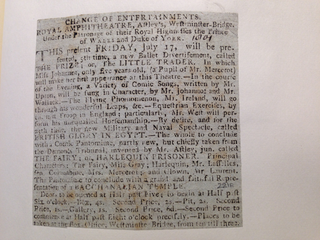 CHANGE OF ENTERTAINMENTS.
ROYAL AMPHITHEATRE, Astley's, Westminster-Bridge,
Under the Patronage of their Royal Highnesses the Prince
of WALES and Duke of YORK.
THIS present FRIDAY, July 17, will be pre-
sented, time, a new Ballet Divertisement, called
THE PRIZE; or, The LITTLE TRADER. In which
Miss Johannot, only five years old, (a Pupil of Mr. Mercerot)
will make her appearance at this Theatre.—In the course
of the Evening, a Variety of Comic Songs, written by Mr.
Upton, will be sung in Character by Mr. Johannot and Mr.
Wallack.—The Flying Phenomenon, Mr. Ireland, will go
through his wonderful Leaps, &c.—Equestrian Exercises, by
Troop in England; particularly, Mr. West will per-
form his Horsemanship.—By desire, and for the
time, the new Military and Naval Spectacle, called
BRITISH GLORY IN EGYPT.—The whole to conclude
with a Comic Pantomime, partly new, but chiefly taken from
the Favourite, invented by Mr. Astley, jun. called
THE FAIRY; or, HARLEQUIN PRISONER. Principal
Characters, The Fairy, Miss Grey; Harlequin, Mr.
Mrs. Mercerot; and Clown, Mr. Laurent.
The Pantomime to conclude with a and faithful Re-pre-
sentation of a BACCHANALIAN TEMPLE.
Doors to be opened at Half past Five; to begin at Half past
Six o'clock. Box, 4s. Second Price, 2s.—Pit, 2s. Second
Price, 1s.—Gallery, 1s. Second Price, 6d.—Second Price to
commence at Half past Eight o'clock precisely.—Places to be
taken of Mr. at the Box Office, Westminster Bridge, from till three.